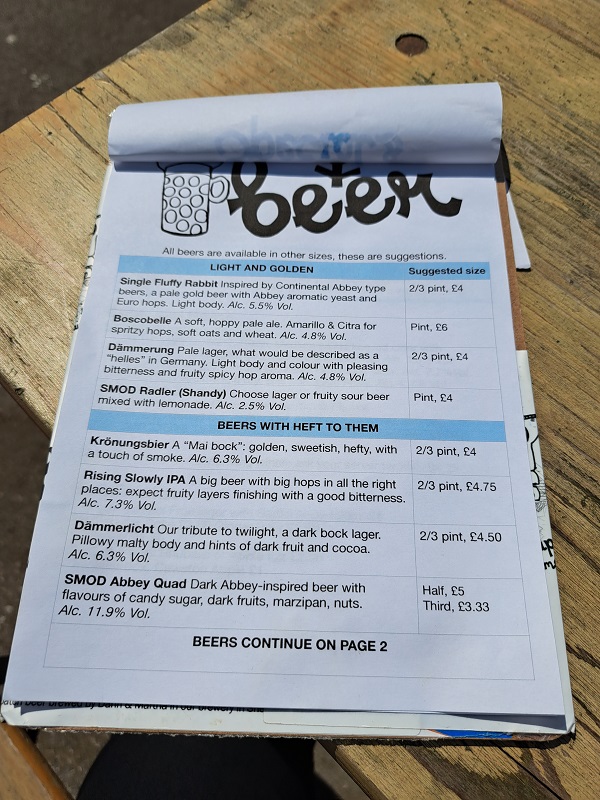 beer
All beers are available in other sizes, these are suggestions.
LIGHT AND GOLDEN Suggested size
Single Fluffy Rabbit Inspired by Continental Abbey type 2/3 pint, £4
beers, a pale gold beer with Abbey aromatic yeast and
Euro hops. Light body. Alc. 5.5% Vol.
Boscobelle A soft, hoppy pale ale. Amarillo & Citra for Pint, £6
spritzy hops, soft oats and wheat. Alc. 4.8% Vol.
Dämmerung Pale lager, what would be described as a 2/3 pint, £4
"helles" in Germany. Light body and colour with pleasing
bitterness and fruity spicy hop aroma. Alc. 4.8% Vol.
SMOD Radler (Shandy) Choose lager or fruity sour beer Pint, £4
mixed with lemonade. Alc. 2.5% Vol.
BEERS WITH HEFT TO THEM
Krönungsbier A "Mai bock": golden, sweetish, hefty, with 2/3 pint, £4
a touch of smoke. Alc. 6.3% Vol.
Rising Slowly IPA A big beer with big hops in all the right 2/3 pint, £4.75
places: expect fruity layers finishing with a good bitterness.
Alc. 7.3% Vol.
Dämmerlicht Our tribute to twilight, a dark bock lager. 2/3 pint, £4.50
Pillowy malty body and hints of dark fruit and cocoa.
Alc. 6.3% Vol.
SMOD Abbey Quad Dark Abbey-inspired beer with Half, £5
flavours of candy sugar, dark fruits, marzipan, nuts. Third, £3.33
Alc. 11.9% Vol.
BEERS CONTINUE ON PAGE 2